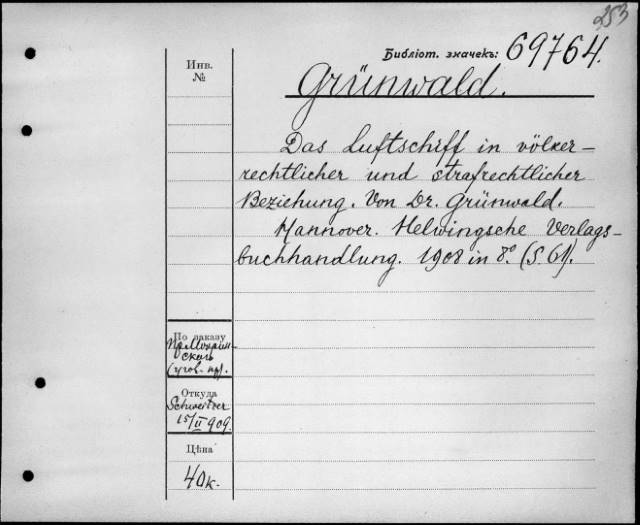 253
Библіот. значекъ: 69764.
Инв.
№
Grünwald.
Das Luftschiff in völker-
rechtlicher und strafrechtlicher
Beziehung. Von Dr. Grünwald.
Hannover. Helwingsche Verlags-
buchhandlung. 1908 in 8.° (S. 61).
По заказу
(угов. пр).
Откуда
Schweitzer
15/II 909.
Цѣна
40к.